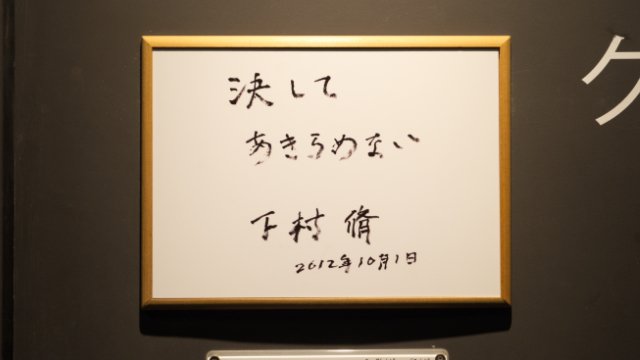 決して
あきらめない
下村 脩
2012年10月1日
ク